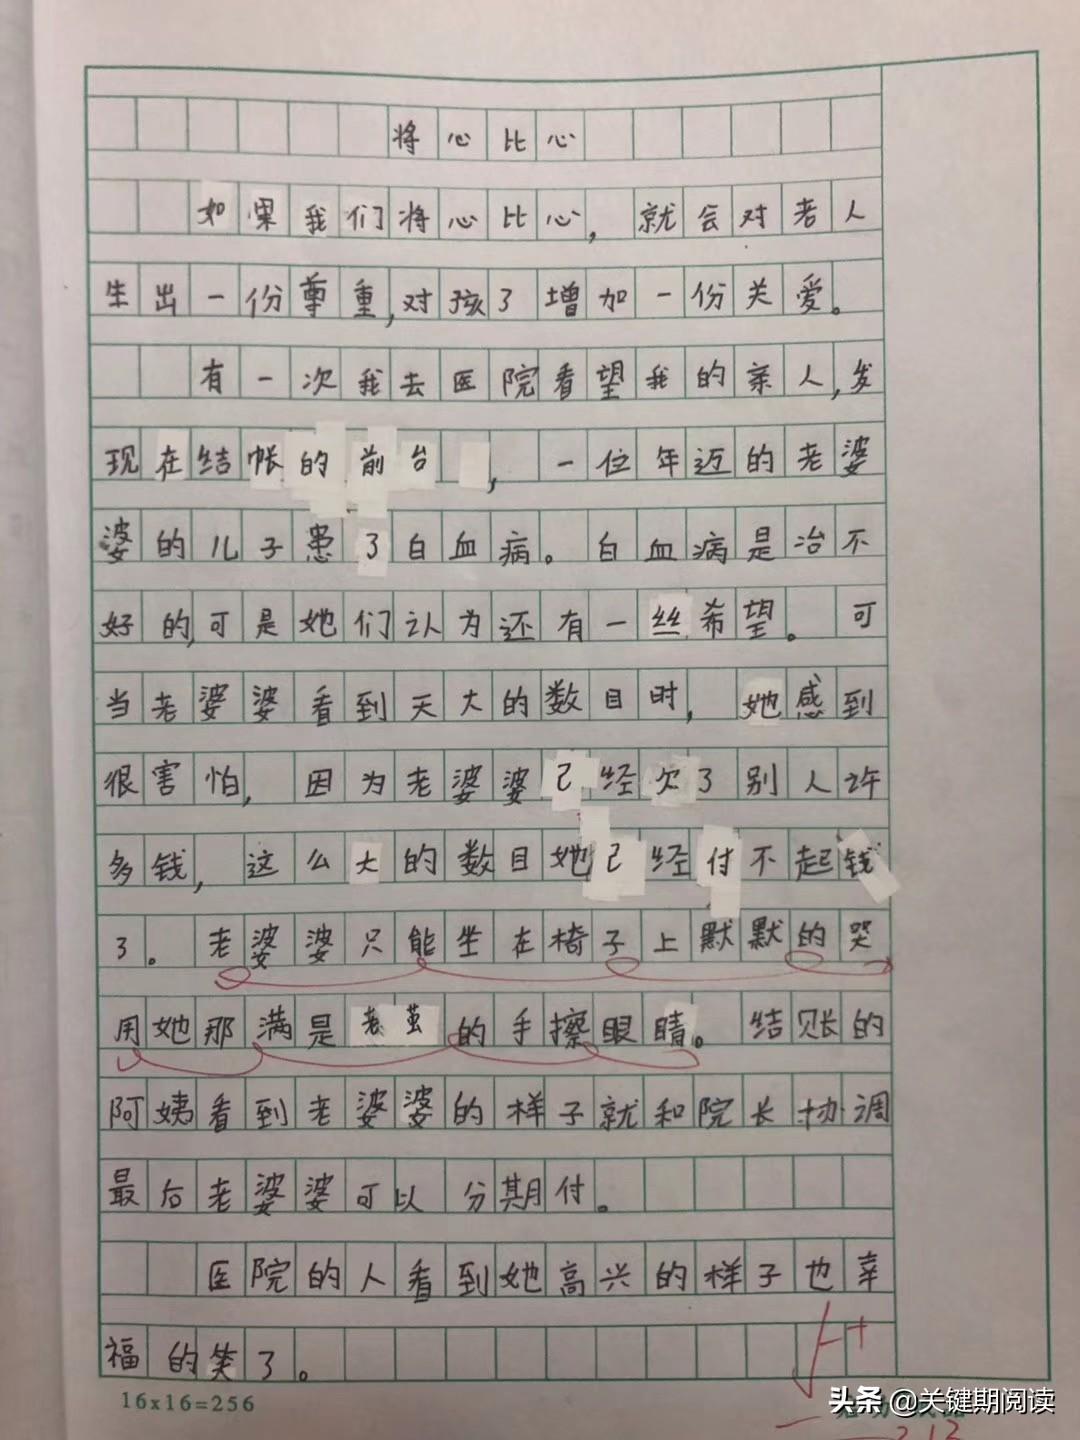 将心比心
如果我们将心比心，就会对老人
生出一份尊重，对孩了增加一份关爱。
有一次我去医院看望我的亲人，发
现在结帐的前台，一位年迈的老婆
婆的儿子患了白血病。白血病是治不
好的，可是她们认为还有一丝希望。可
当老婆婆看到天大的数目时，她感到
很害怕，因为老婆婆已经欠了别人许
多钱，这么大的数目她已经付不起钱
了。老婆婆只能坐在椅子上默默的哭
用她那满是老茧的手擦眼睛。结账的
阿姨看到老婆婆的样子就和院长协调
最后老婆婆可以分期付。
医院的人看到她高兴的样子也幸
福的笑了。
16x16=256
头条 @关键期阅读